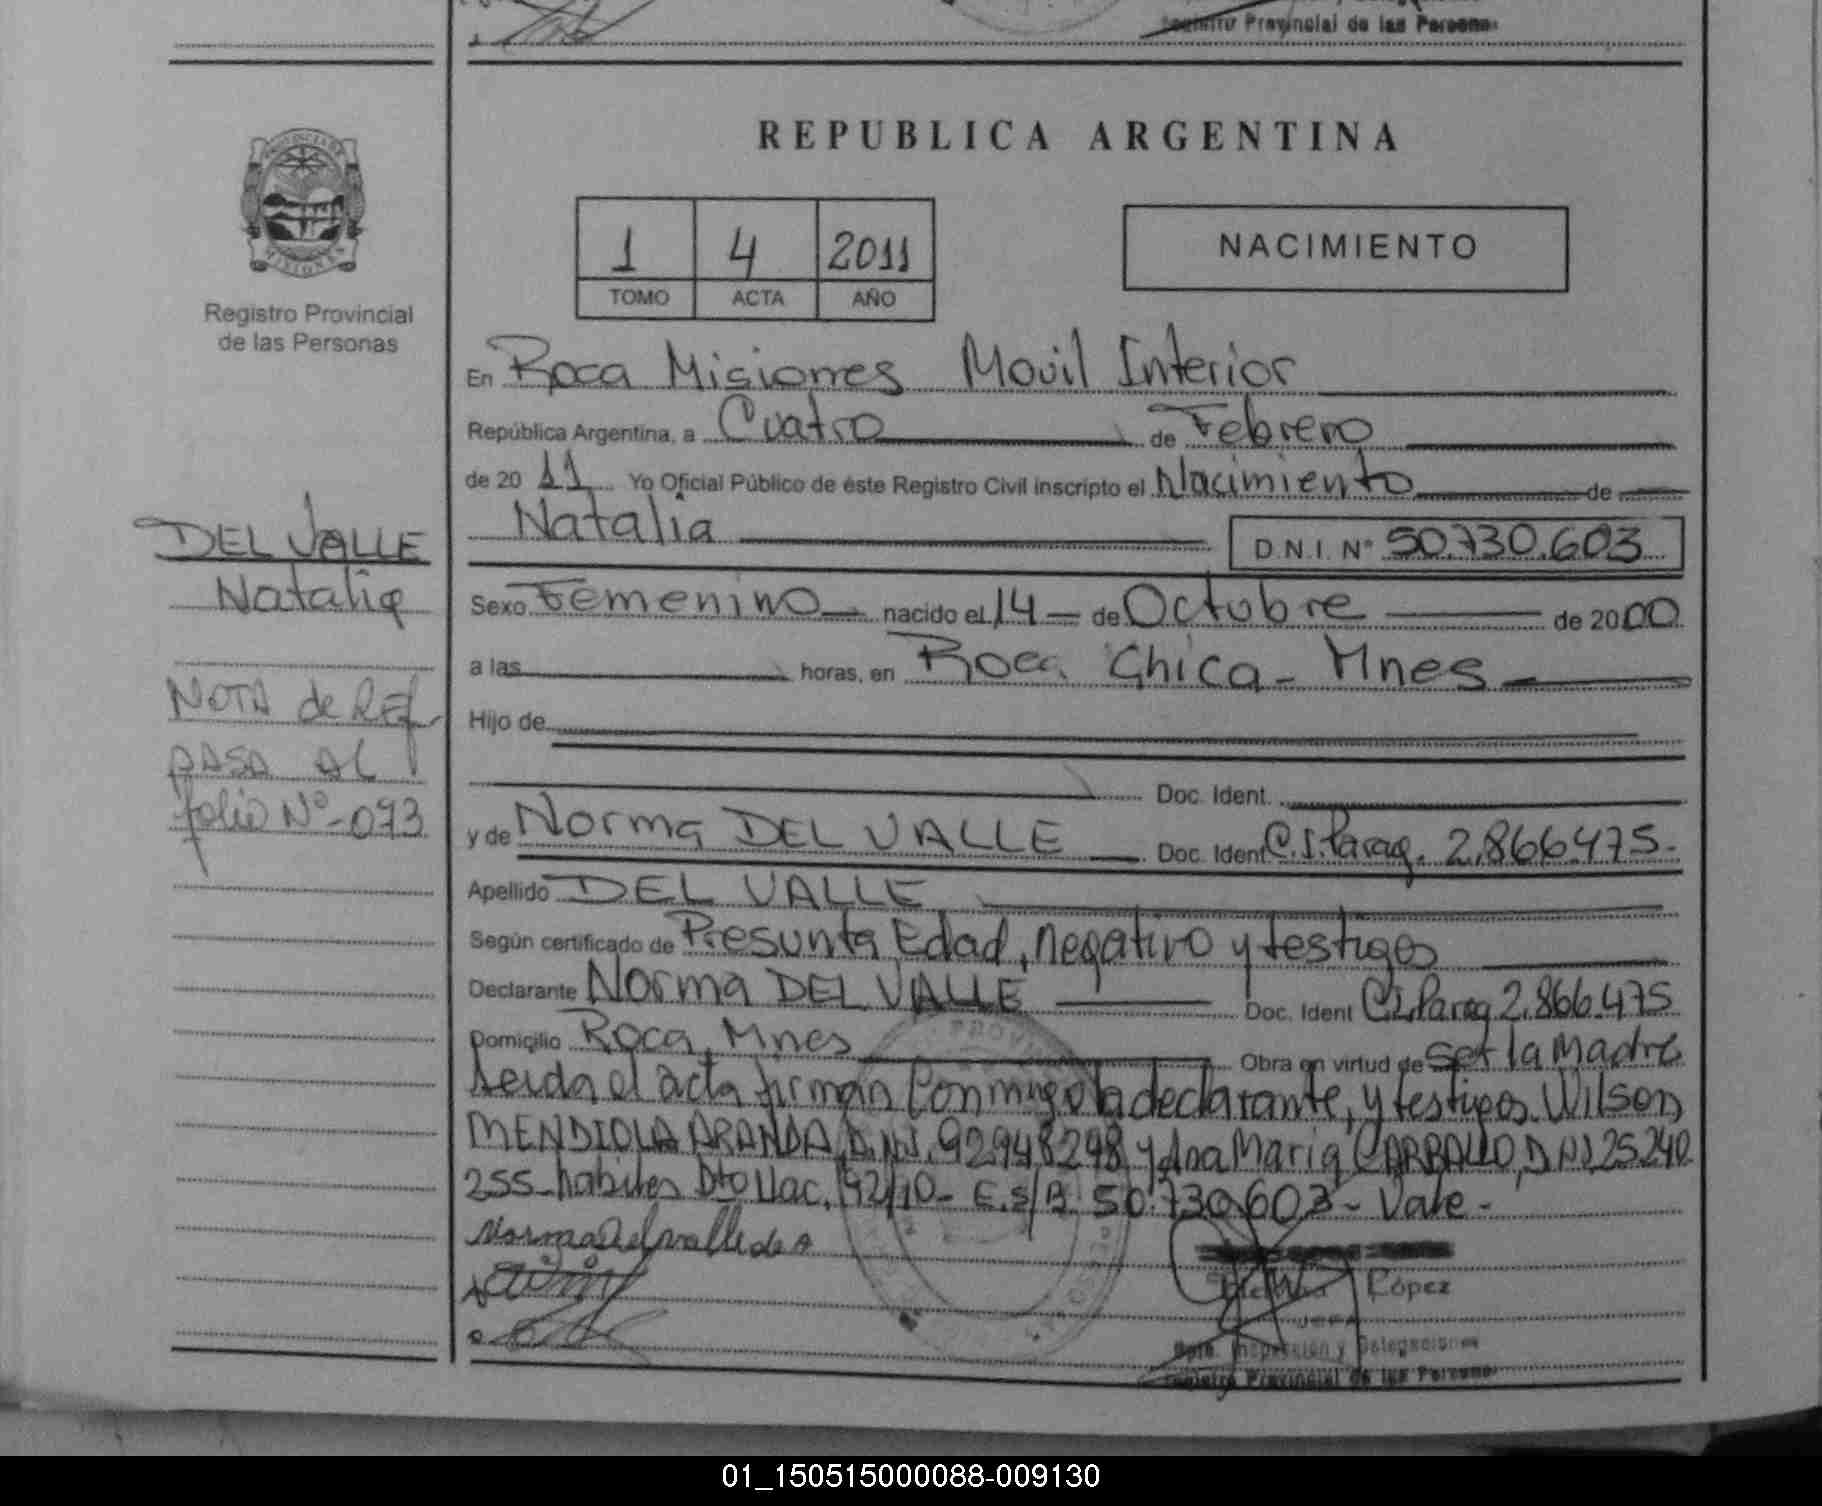 Registro Provincial de las Personas
REPUBLICA ARGENTINA
PROVINCIA DE
MISIONES
1 4 2011
TOMO ACTA AÑO
NACIMIENTO
Registro Provincial
de las Personas
En Roca Misiones Movil Interior
República Argentina, a Cuatro de Febrero
de 20 11 Yo Oficial Público de éste Registro Civil inscripto el Nacimiento de
Natalia D.N.I. Nº 50.730.603
DEL VALLE
Natalia
Sexo Femenino nacido el 14 de Octubre de 2000
a las horas, en Roca Chica - Mnes
NOTA de REF
PASA AL
folio Nº-093
Hijo de
Doc. Ident.
y de Norma DEL VALLE Doc. Ident C.I. Parag. 2.866.475.
Apellido DEL VALLE
Según certificado de Presunta Edad, negativo y testigos
Declarante Norma DEL VALLE Doc. Ident C.I. Parag 2.866.475
Domicilio Roca, Mnes Obra en virtud de ser la madre
Leida el acta firman Conmigo la declarante, y testigos Wilson
MENDIOLA ARANDA, D.N.I. 92.948298 y Ana Maria CARBALLO, DNI 25240
255 habiles Dto Nac. 92/10- E.S/B. 50.730603 - Vale -
Norma Del valle de A
López
JEFA
Dpto. Inspección y Delegaciones
Registro Provincial de las Personas
01_150515000088-009130